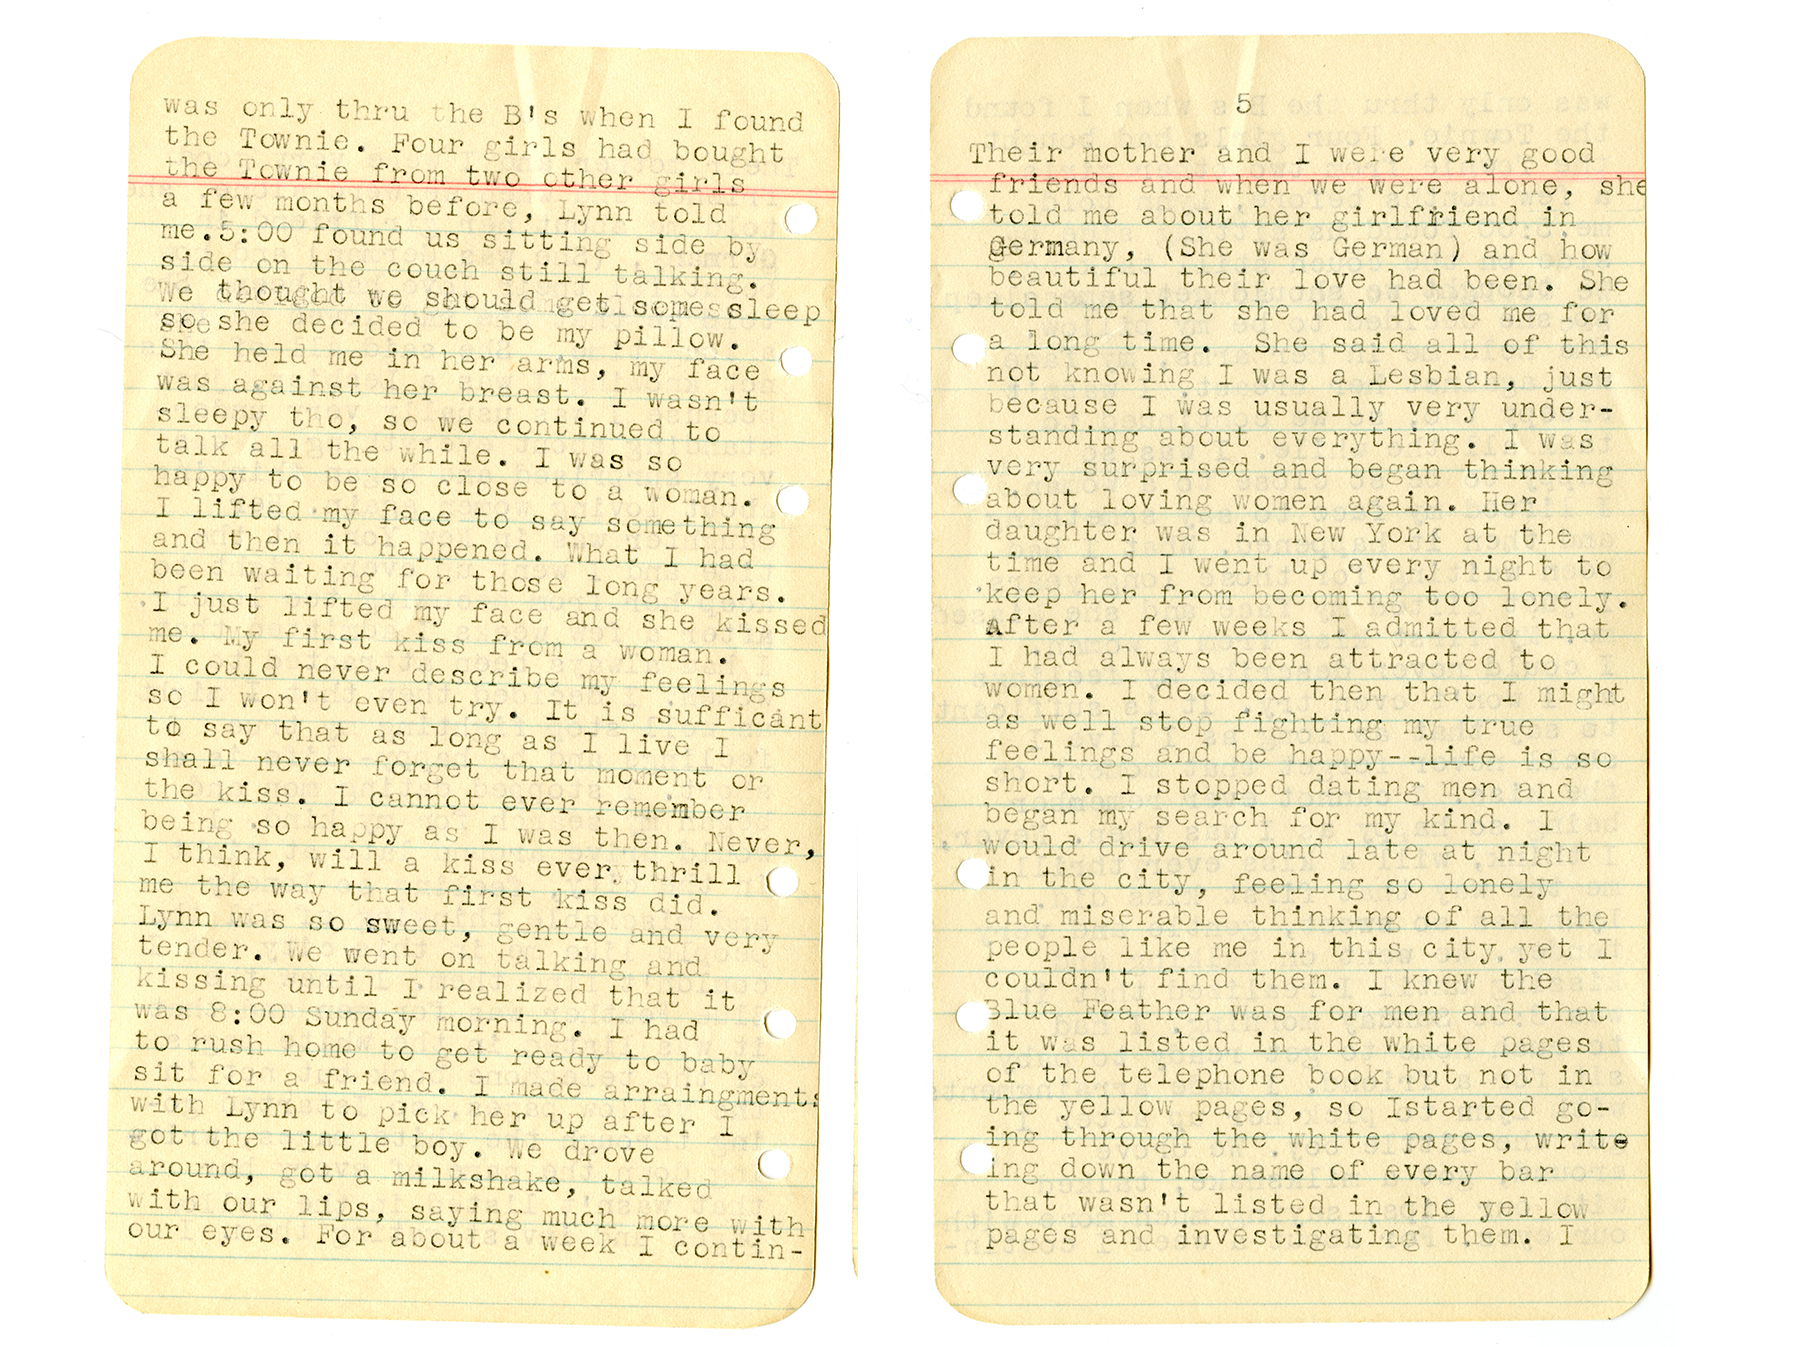 was only thru the B's when I found
the Townie. Four girls had bought
the Townie from two other girls
a few months before, Lynn told
me.5:00 found us sitting side by
side on the couch still talking.
We thought we should get some sleep
so she decided to be my pillow.
She held me in her arms, my face
was against her breast. I wasn't
sleepy tho, so we continued to
talk all the while. I was so
happy to be so close to a woman.
I lifted my face to say something
and then it happened. What I had
been waiting for those long years.
I just lifted my face and she kissed
me. My first kiss from a woman.
I could never describe my feelings
so I won't even try. It is sufficant
to say that as long as I live I
shall never forget that moment or
the kiss. I cannot ever remember
being so happy as I was then. Never,
I think, will a kiss ever thrill
me the way that first kiss did.
Lynn was so sweet, gentle and very
tender. We went on talking and
kissing until I realized that it
was 8:00 Sunday morning. I had
to rush home to get ready to baby
sit for a friend. I made arraingments
with Lynn to pick her up after I
got the little boy. We drove
around, got a milkshake, talked
with our lips, saying much more with
our eyes. For about a week I contin-
5
Their mother and I were very good
friends and when we were alone, she
told me about her girlfriend in
Germany, (She was German) and how
beautiful their love had been. She
told me that she had loved me for
a long time. She said all of this
not knowing I was a Lesbian, just
because I was usually very under-
standing about everything. I was
very surprised and began thinking
about loving women again. Her
daughter was in New York at the
time and I went up every night to
keep her from becoming too lonely.
After a few weeks I admitted that
I had always been attracted to
women. I decided then that I might
as well stop fighting my true
feelings and be happy--life is so
short. I stopped dating men and
began my search for my kind. I
would drive around late at night
in the city, feeling so lonely
and miserable thinking of all the
people like me in this city yet I
couldn't find them. I knew the
Blue Feather was for men and that
it was listed in the white pages
of the telephone book but not in
the yellow pages, so Istarted go-
ing through the white pages, write
ing down the name of every bar
that wasn't listed in the yellow
pages and investigating them. I